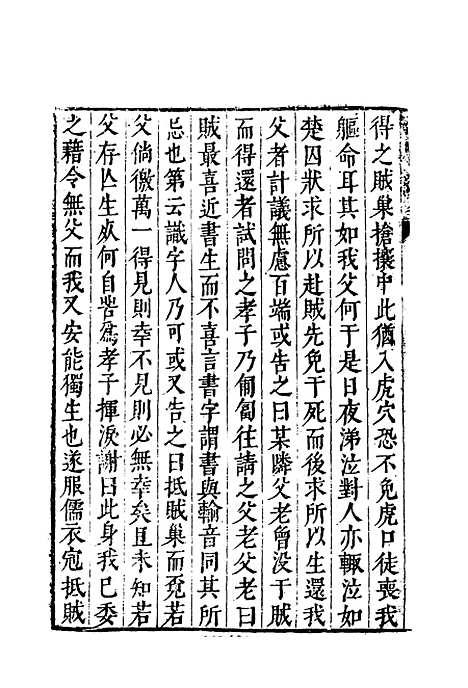 得之賊巢搶攘中此猶入虎穴恐不免虎口徒喪我
軀命耳其如我父何于是日夜涕泣對人亦輙泣如
楚囚狀求所以赴賊先免于死而後求所以生還我
父者計議無慮百端或告之曰某隣父老曾没于賊
而得還者試問之孝子乃匍匐往請之父老父老曰
賊最喜近書生而不喜言書字謂書與輸音同其所
忌也第云識字人乃可或又告之曰抵賊巢而覓若
父倘徼萬一得見則幸不見則必無幸矣且未知若
父存亾生死何自苦爲孝子揮淚謝曰此身我已委
之藉令無父而我又安能獨生也遂服儒衣冠抵賊